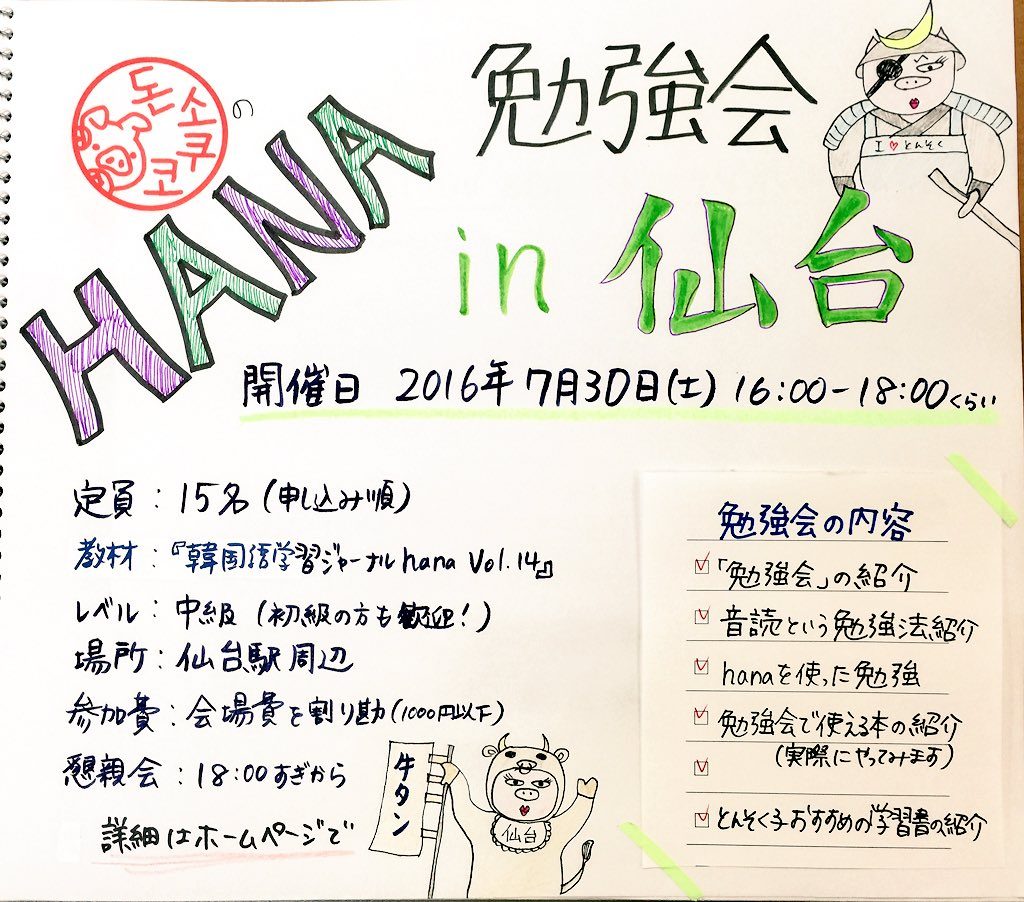 돈소쿠코
の
HANA
勉強会
I ♥ とんそく
in 仙台
開催日 2016年7月30日(土) 16:00-18:00くらい
定員：15名(申し込み順)
教材：『韓国語学習ジャーナルhana Vol.14』
レベル：中級(初級の方も歓迎!)
場所：仙台駅周辺
参加費：会場費を割り勘(1000円以下)
懇親会：18:00すぎから
詳細はホームページで
牛タン
仙台
勉強会の内容
「勉強会」の紹介
音読という勉強法紹介
hanaを使った勉強
勉強会で使える本の紹介
(実際にやってみます)
とんそく子おすすめの学習書の紹介